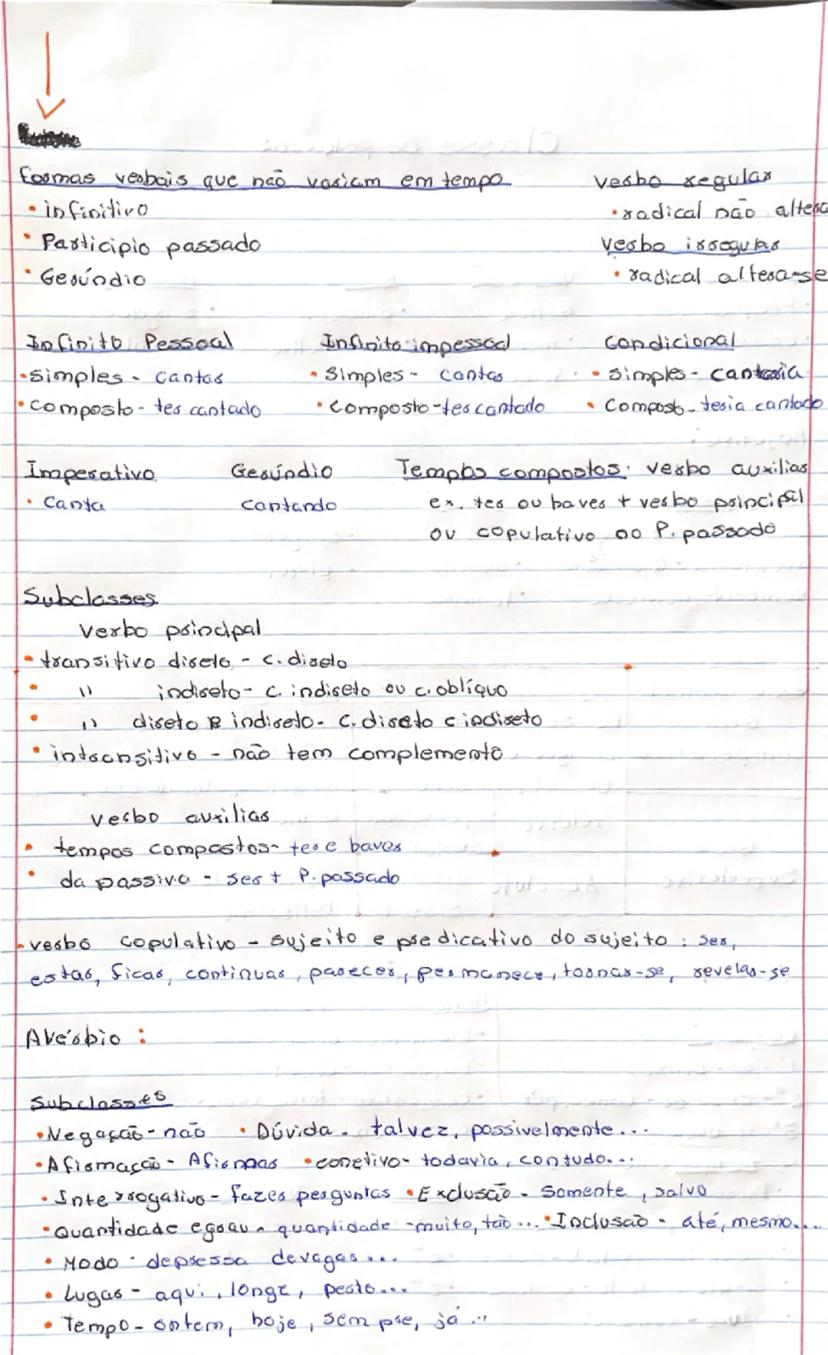 Formas verbais que não variam em tempo
• infinitivo
• Participio passado
• Gerúndio
verbo regular
• radical não altera
verbo irregular
• radical altera-se
Infinito Pessoal
• simples - cantar
• composto - ter cantado
Infinito impessoal
• Simples - cantar
• composto - ter cantado
Condicional
• simples - cantaria
• Compost - teria cantado
Imperativo
• Canta
Gerúndio
cantando
Tempos compostos: verbo auxiliar
ex. ter ou haver + verbo principal
ou copulativo no P. passado
Subclasses
Verbo principal
• transitivo direto - c. direto
• " indireto - c. indireto ou c. oblíquo
• " direto e indireto - c. direto e indireto
• intransitivo - não tem complemento
verbo auxiliar
• tempos compostos - ter e haver
• da passiva - ser + P. passado
• verbo copulativo - sujeito e predicativo do sujeito : ser,
estar, ficar, continuar, parecer, permanece, tornar-se, revelar-se
Avérbio :
Subclasses
• Negação - não • Dúvida - talvez, possivelmente...
• Afirmação - Afirmar • conetivo - todavia, contudo...
• Interrogativo - fazer perguntas • Exclusão - Somente, salvo
• Quantidade e grau - quantidade - muito, tão ... • Inclusão - até, mesmo...
• Modo - depressa devagar...
• Lugar - aqui, longe, perto...
• Tempo - ontem, hoje, sempre, já...